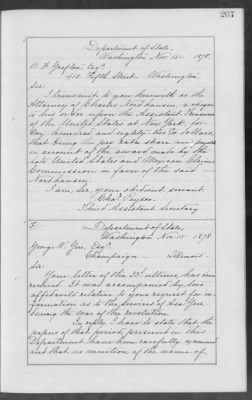 207
Department of State,
Washington Nov. 15- 1878.
Esq.
Fifth Street Washington
Sir:
I transmit to you herewith as the
Attorney of Charles Nordhausen, a
to his order upon the Assistant Treasurer
of the United States at New York for
One hundred and eighty two Dollars
that being the pro rata share now
on account of the award made by the
late United States and Mexican Claims
Commission in favor of the said
Nordhausen.
I am, Sir, your obedient servant,
Chas. Payson,
Third Assistant Secretary
Department of State,
Washington Nov. 15- 1878
George W. Gee, Esq.
Champaign — Illinois.
Sir:
Your letter of the ultimo, has been
received. It was accompanied by two
affidavits relative to your request for in-
formation as to the services of Gee
during the war of the revolution.
In reply, I have to state, that the
papers of that period, preserved in this
Department have been carefully examined
and that no mention of the name of